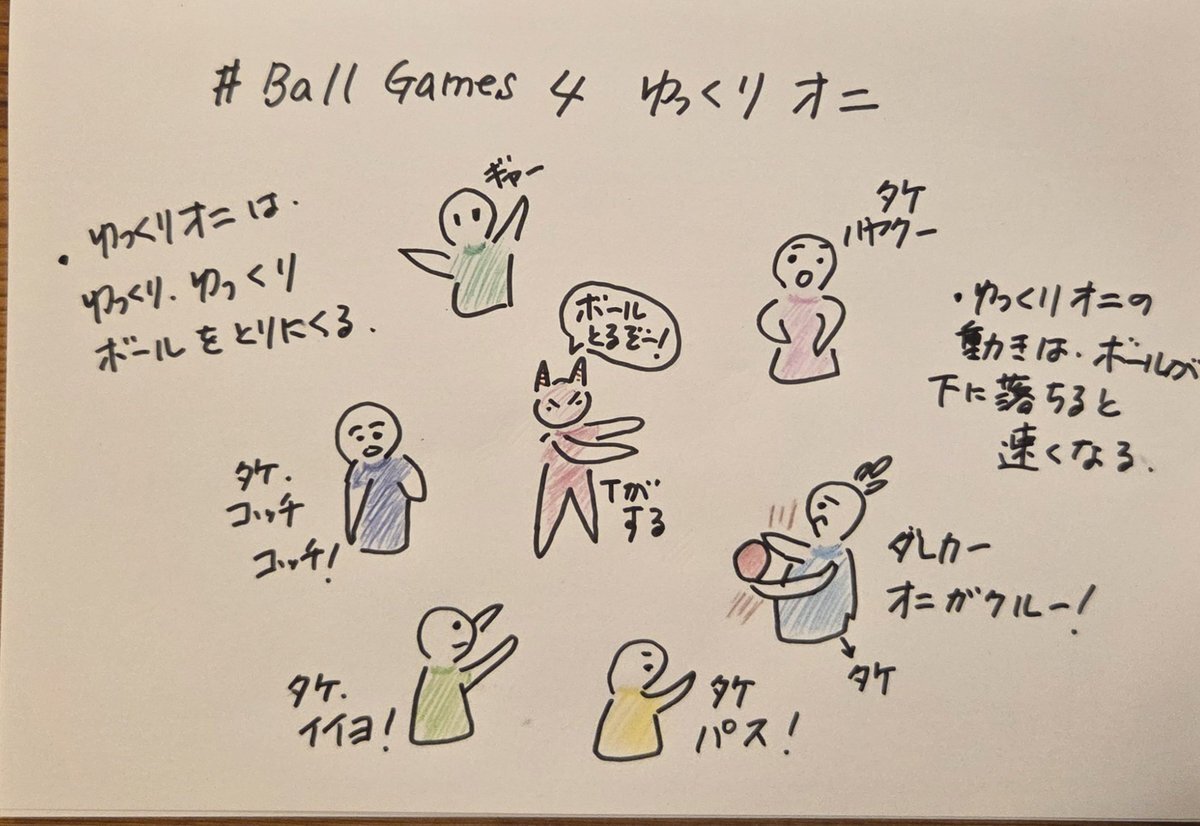 # Ball Games 4 ゆっくりオニ
・ゆっくりオニは.
ゆっくり.ゆっくり
ボールをとりにくる.
ギャー
タケ
ハヤクー
ボール
とるぞー!
・ゆっくりオニの
動きは.ボールが
下に落ちると
速くなる.
タケ.
コッチ
コッチ!
Tが
する
ダレカー
オニがクルー!
タケ
タケ.
イイヨ!
タケ
パス!